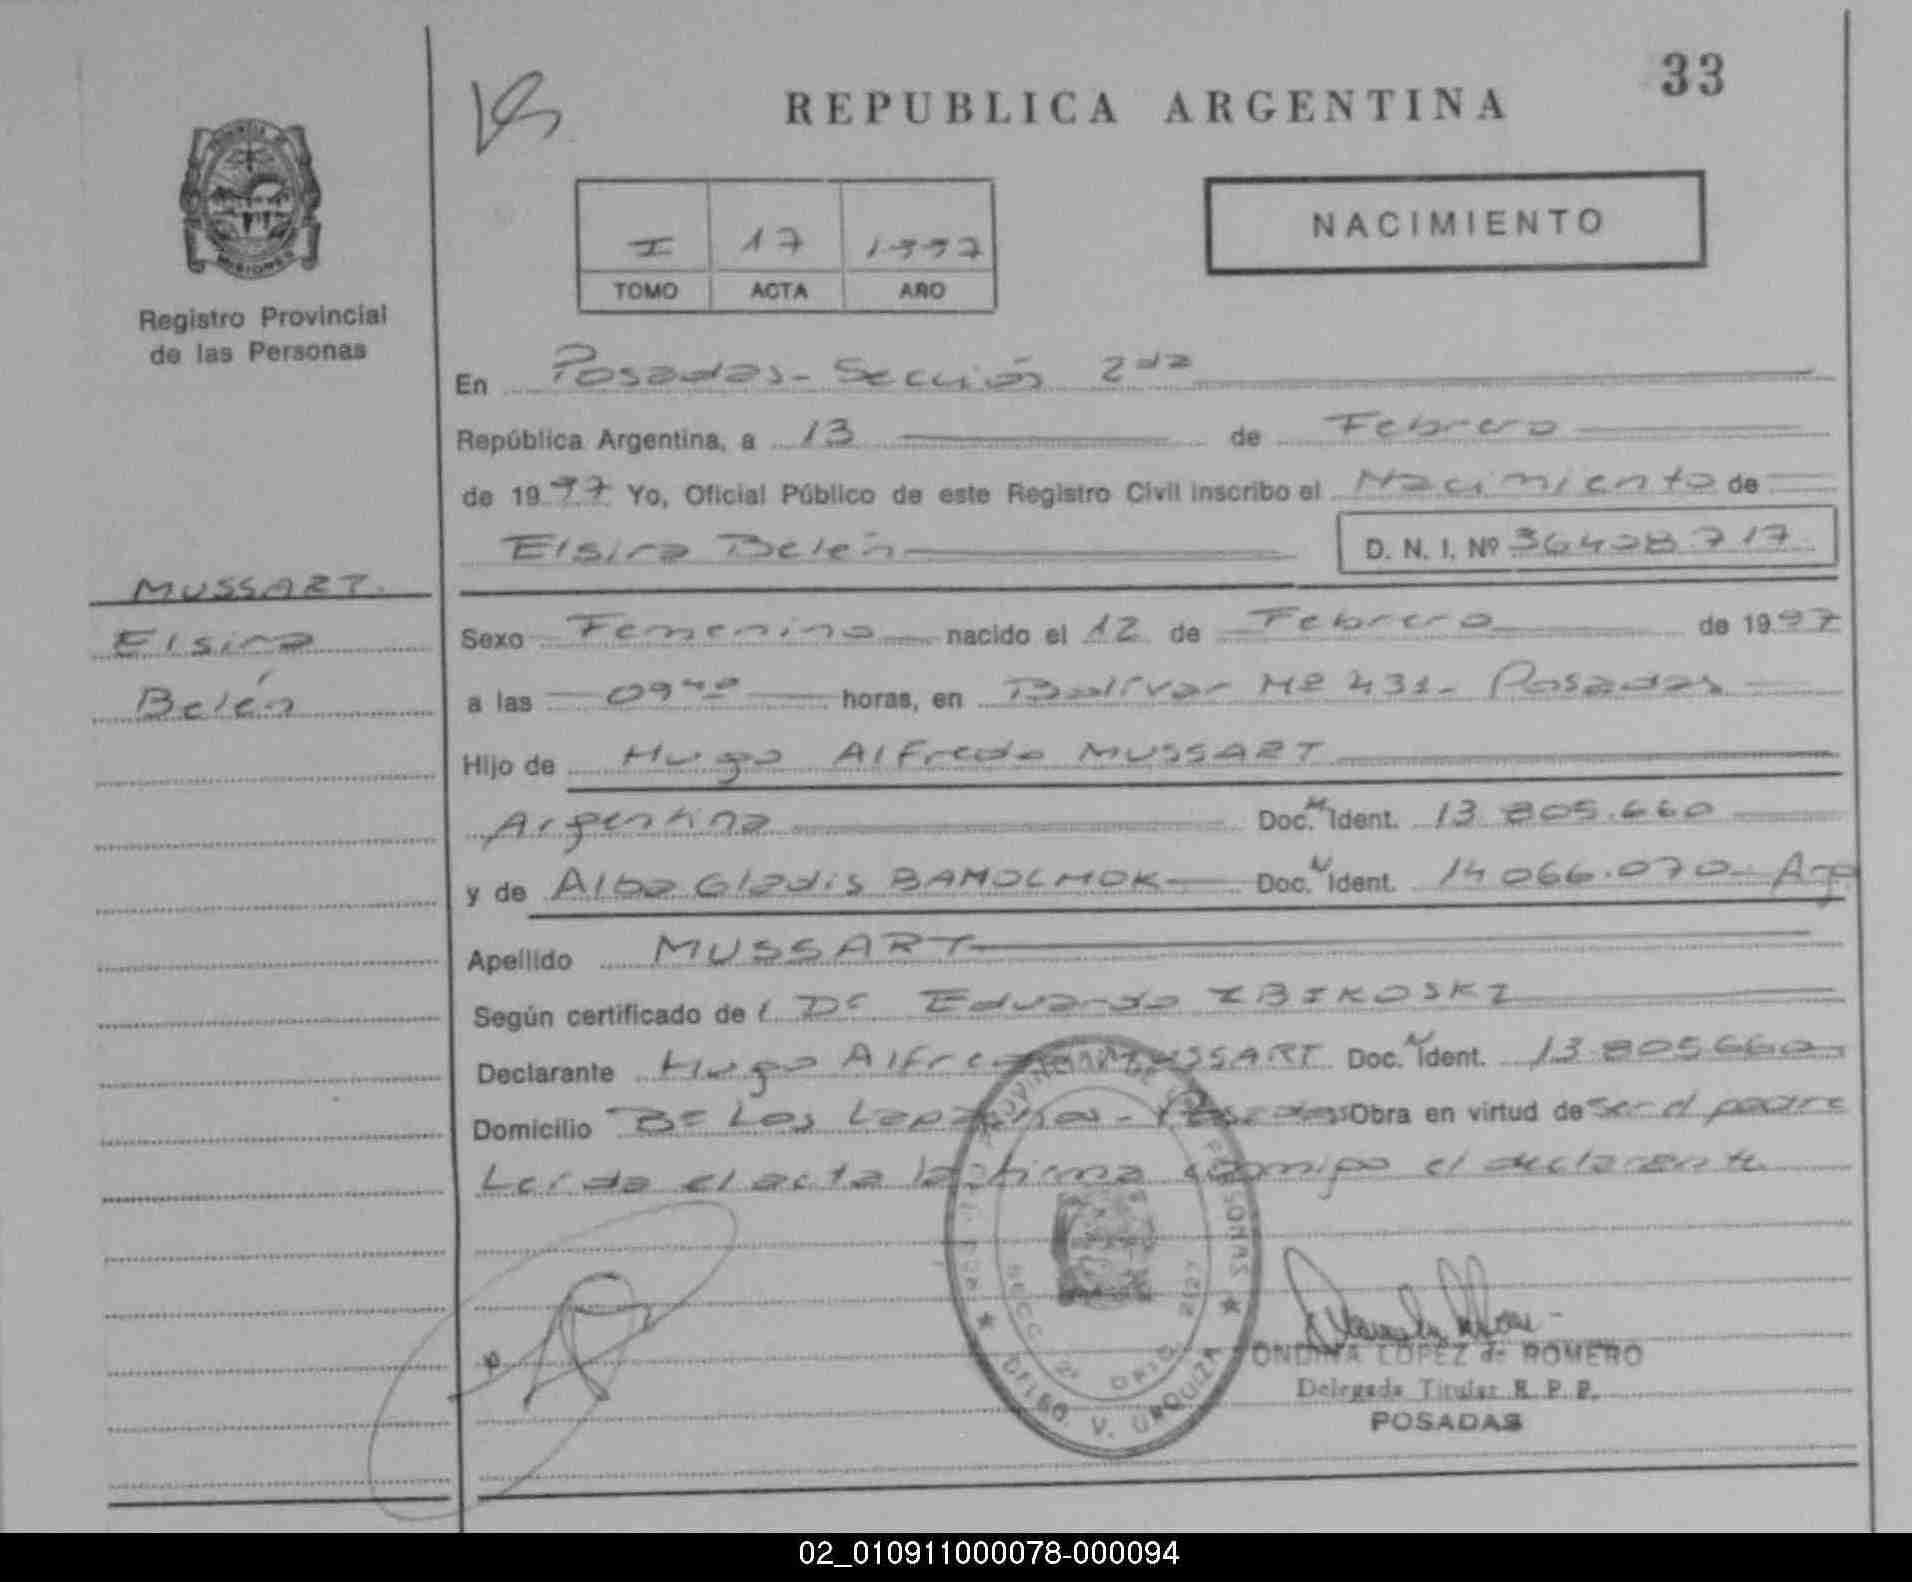 33
REPUBLICA ARGENTINA
NACIMIENTO
I 17 1997
TOMO ACTA AÑO
MISIONES
Registro Provincial
de las Personas
En Posadas - Sección 2da
República Argentina, a 13 de Febrero
de 1997 Yo, Oficial Público de este Registro Civil inscribo el Nacimiento de
Elsira Belén D. N. I. Nº 36.408.717
MUSSART.
Elsira
Belén
Sexo Femenino nacido el 12 de Febrero de 1997
a las 09 40 horas, en Bolívar Nº 431 - Posadas
Hijo de Hugo Alfredo MUSSART
Argentina Doc. N Ident. 13.805.660
y de Alba Gladis Doc. N Ident. 14.066.070 - Arg
Apellido MUSSART
Según certificado de l Dr Eduardo ZBIKOSKI
Declarante Hugo Alfredo MUSSART Doc. N Ident. 13.805.660
Domicilio Bº Los - Posadas Obra en virtud de ser el padre
Leída el acta la firma conmigo el declarante
PROVINCIAL DE LAS PERSONAS
SECC. 2º
V. URQUIZA
ONDINA LOPEZ de ROMERO
Delegada Titular R. P. P.
POSADAS
02_010911000078-000094